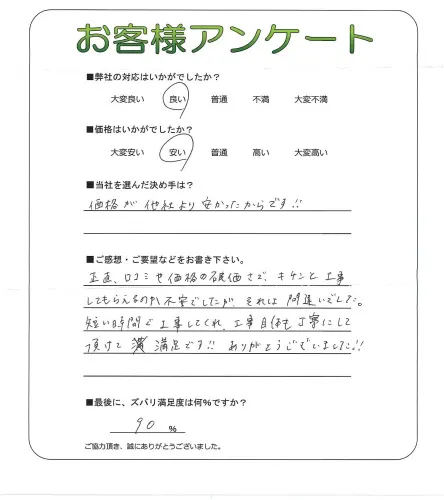 お客様アンケート
■弊社の対応はいかがでしたか?
大変良い 良い 普通 不満 大変不満
■価格はいかがでしたか?
大変安い 安い 普通 高い 大変高い
■当社を選んだ決め手は?
価格が他社より安かったからです!!
■ご感想・ご要望などをお書き下さい。
正直、口コミや価格の破価さで、キチンと工事
してもらえるのか不安でしたが、それは間違いでした。
短い時間で工事してくれ、工事自体も丁寧にして
頂けて 満足です!! ありがとうございました!!
■最後に、ズバリ満足度は何%ですか?
90 %
ご協力頂き、誠にありがとうございました。